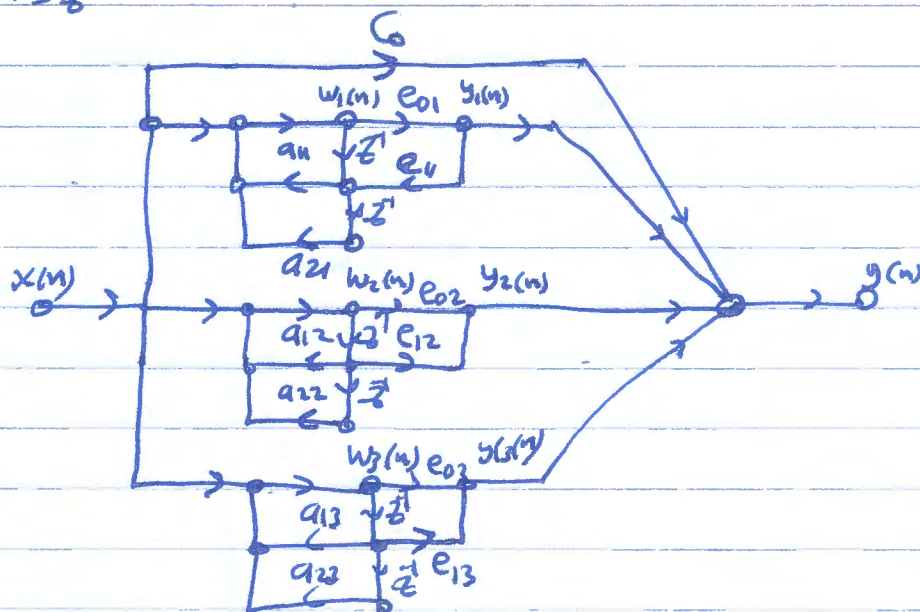 C₀
w₁(n) e₀₁ y₁(n)
a₁₁ z⁻¹ e₁₁
z⁻¹
a₂₁
x(n) w₂(n) e₀₂ y₂(n) y(n)
a₁₂ z⁻¹ e₁₂
a₂₂ z⁻¹
w₃(n) e₀₃ y₃(n)
a₁₃ z⁻¹
a₂₃ z⁻¹ e₁₃